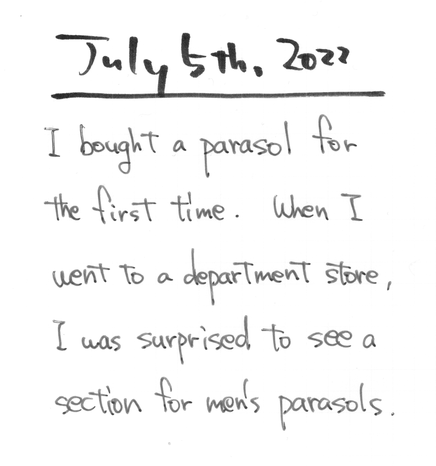 July 5th, 2022
I bought a parasol for
the first time. When I
went to a department store,
I was surprised to see a
section for men's parasols.